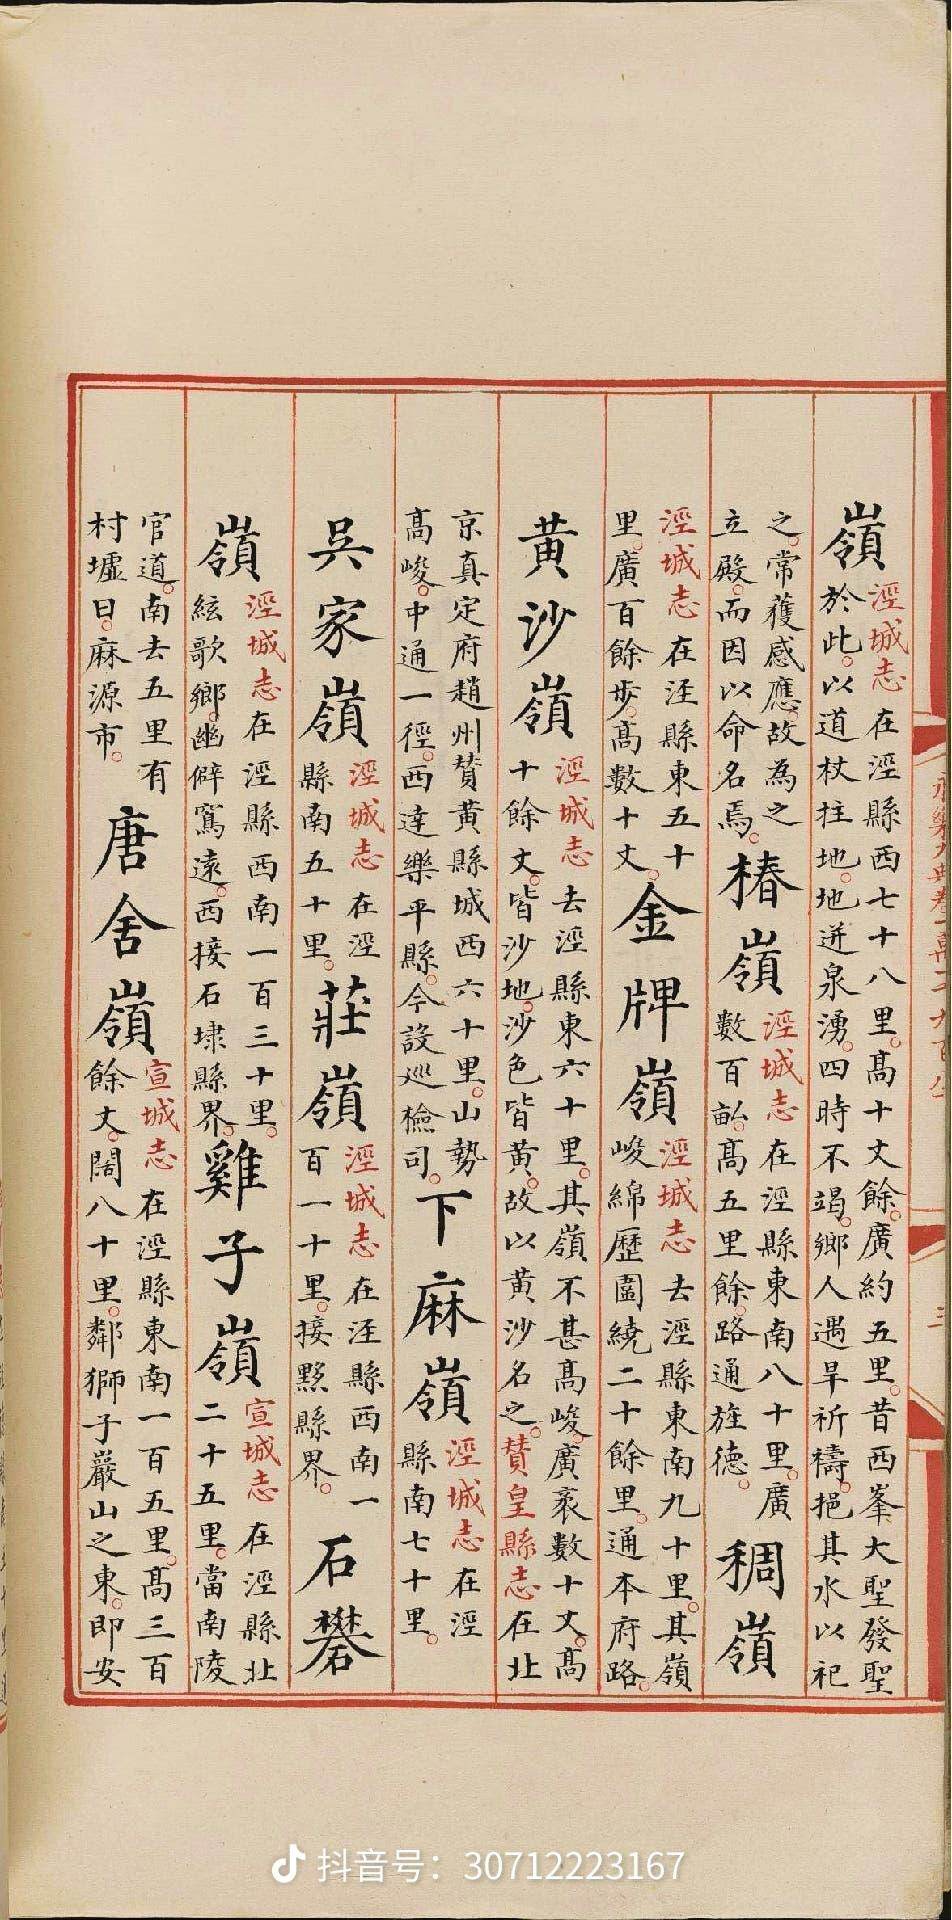 嶺
涇城志在涇縣西七十八里。高十丈餘。廣約五里。昔西峯大聖發聖
於此。以道杖拄地。地迸泉湧。四時不竭。鄉人遇旱祈禱。挹其水以祀
之。常獲感應。故為之
立殿。而因以命名焉。
椿嶺
涇城志在涇縣東南八十里。廣
數百畝。高五里餘。路通旌德。
稠嶺
涇城志在涇縣東五十
里。廣百餘步。高數十丈。
金牌嶺
涇城志去涇縣東南九十里。其嶺
峻綿歷圍繞二十餘里。通本府路。
黄沙嶺
涇城志去涇縣東六十里。其嶺不甚高峻。廣袤數十丈。高
十餘丈。皆沙地。沙色皆黄。故以黄沙名之。贊皇縣志在北
京真定府趙州贊黄縣城西六十里。山勢
高峻。中通一徑。西達樂平縣。今設巡檢司。
下麻嶺
涇城志在涇
縣南七十里。
吳家嶺
涇城志在涇
縣南五十里。
莊嶺
涇城志在涇縣西南一
百一十里。接黟縣界。
石礬
嶺
涇城志在涇縣西南一百三十里。
絃歌鄉。幽僻窵遠。西接石埭縣界。
雞子嶺
宣城志在涇縣北
二十五里。當南陵
官道。南去五里有
村墟曰。麻源市。
唐舍嶺
宣城志在涇縣東南一百五里。高三百
餘丈。闊八十里。鄰獅子巖山之東。即安
抖音号：30712223167